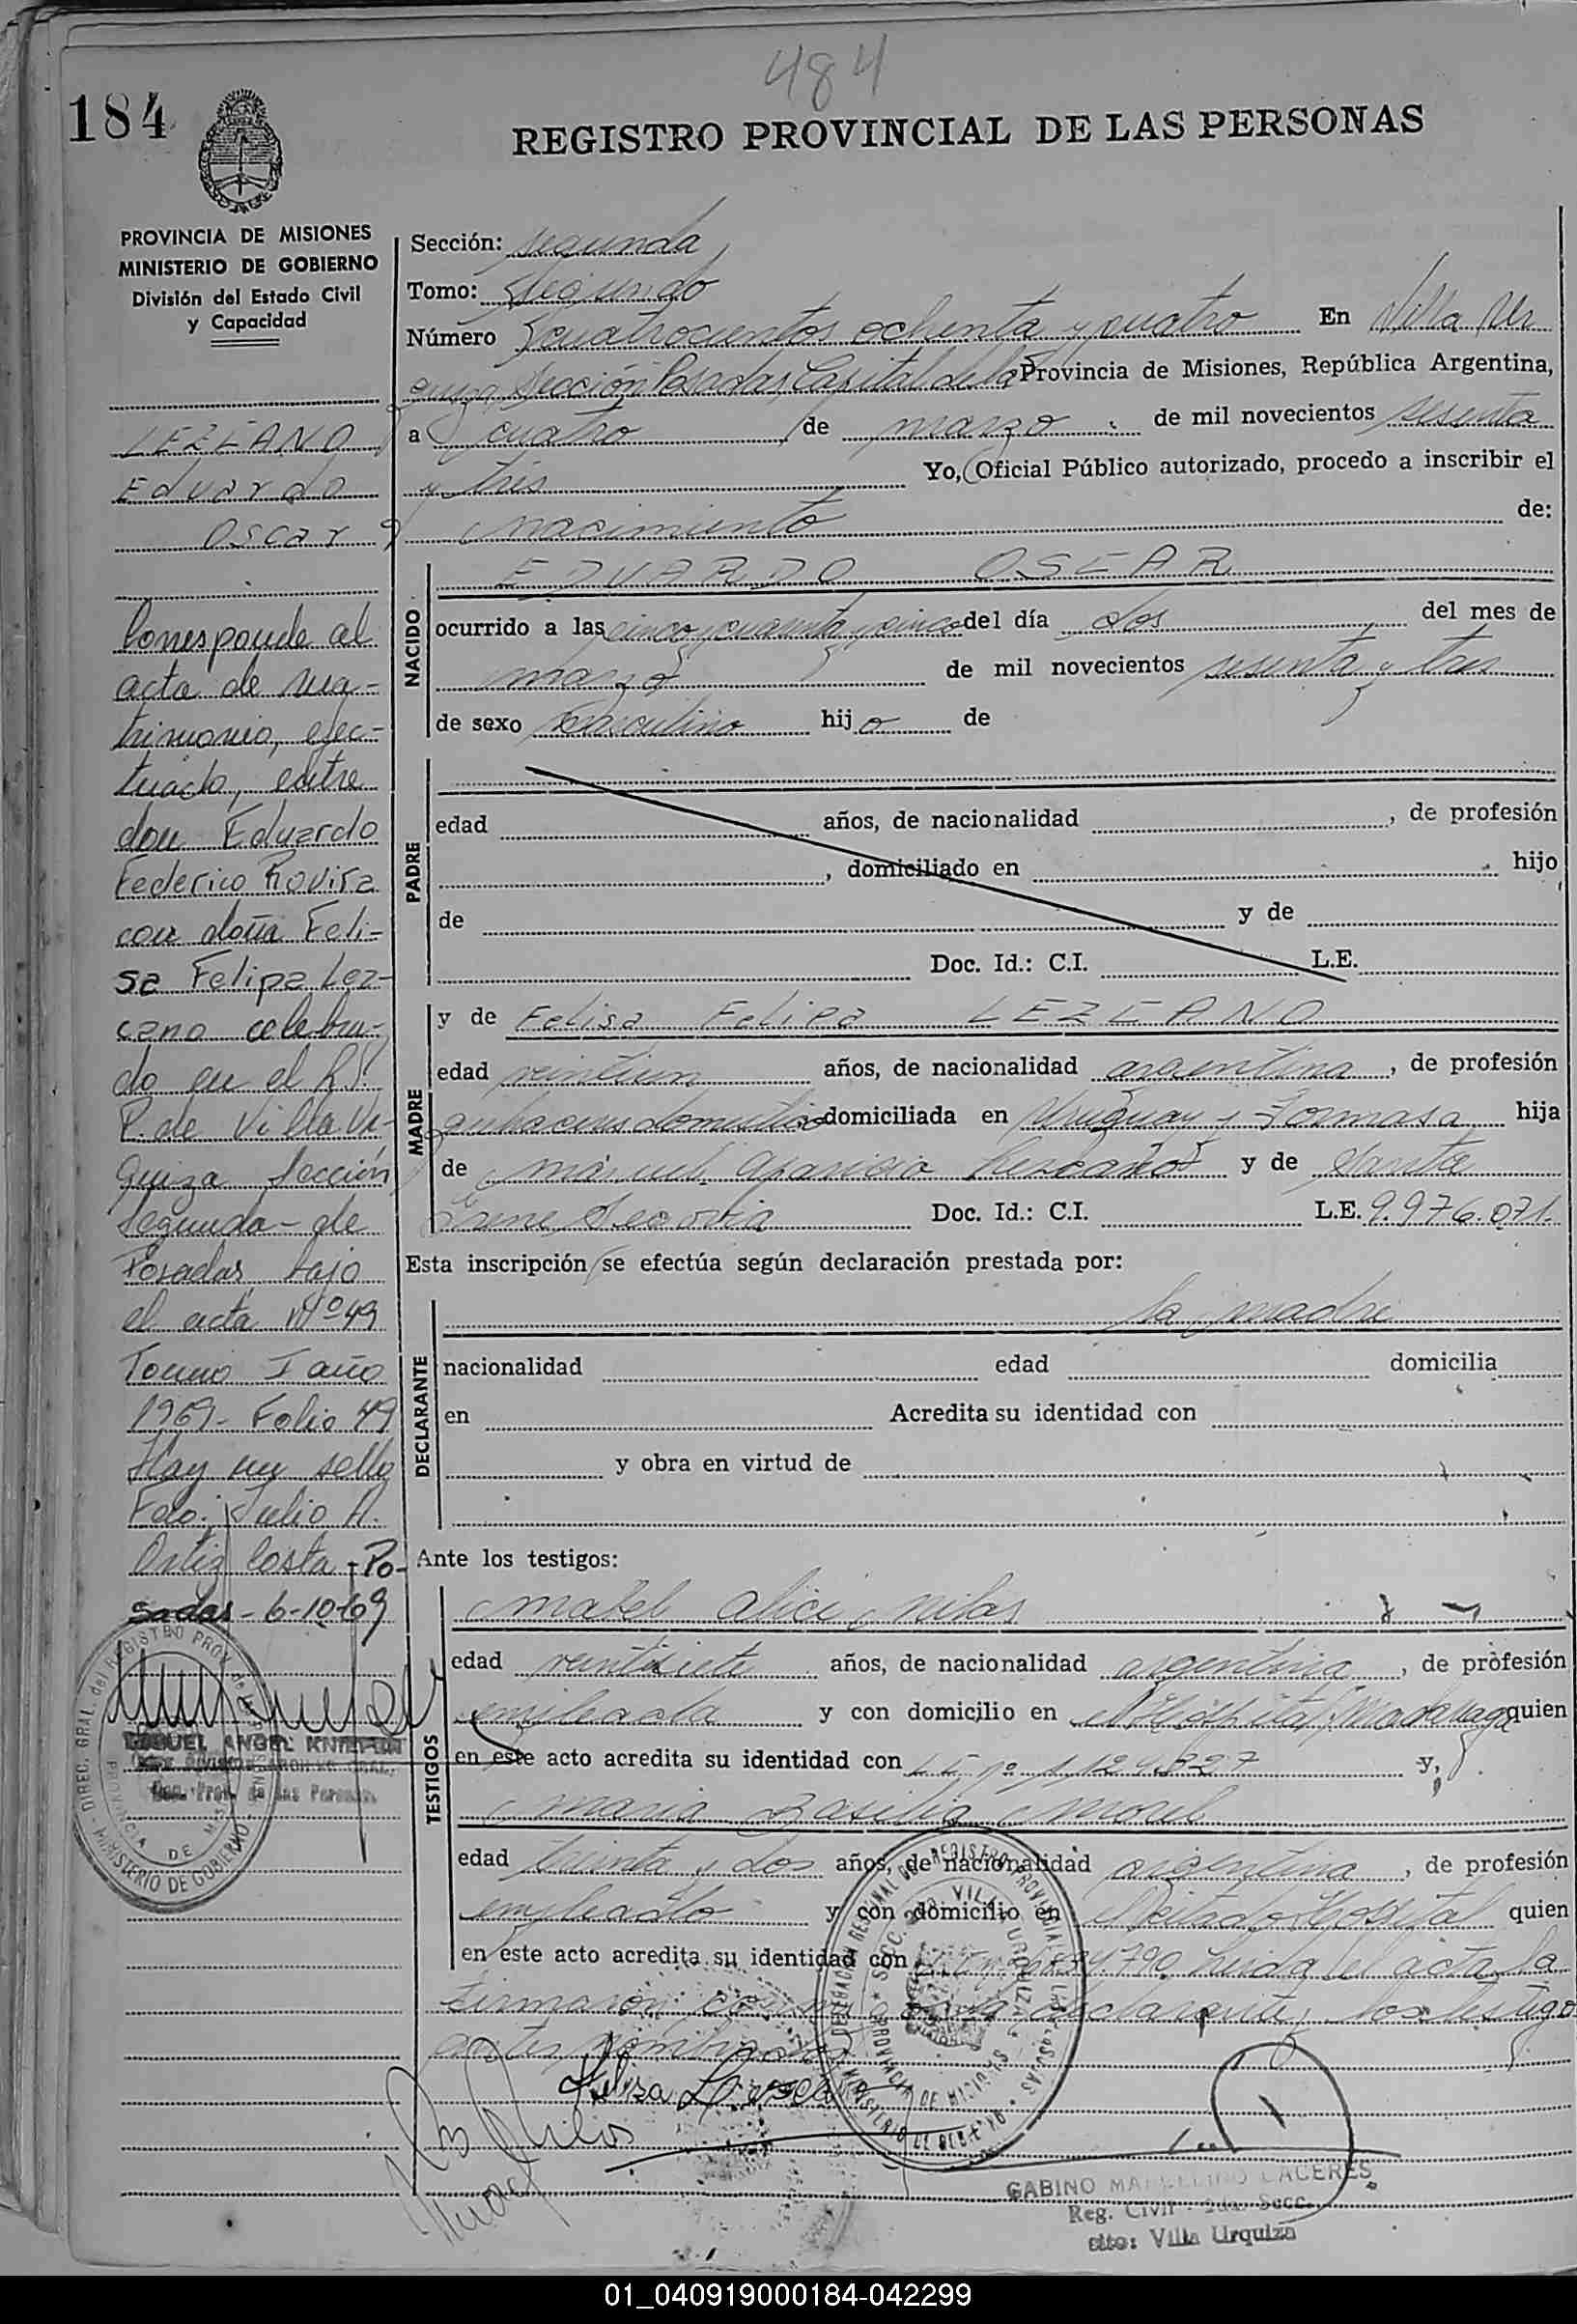 484
184
REGISTRO PROVINCIAL DE LAS PERSONAS
PROVINCIA DE MISIONES
MINISTERIO DE GOBIERNO
División del Estado Civil
y Capacidad
LEZCANO
Eduardo
Oscar
Corresponde al
acta de ma-
trimonio, efec-
tuado, entre
don Eduardo
Federico Rovira
con doña Feli-
sa Felipa Lez-
cano celebra-
do en el R.
P. de Villa Ur-
quiza Sección
Segunda - de
Posadas bajo
el acta Nº 49
Tomo I año
1969 - Folio 49
Hay un sello
Fdo: Julio A.
Ortiz Costa - Po-
sadas - 6-10-69
DIREC. GRAL. del REGISTRO PROV. de
MINISTERIO DE GOBIERNO
PROVINCIA DE
ANGEL
Sección: segunda
Tomo: segundo
Número cuatrocientos ochenta y cuatro En Villa Ur
quiza, Sección Posadas, Capital de la Provincia de Misiones, República Argentina,
a cuatro de marzo de mil novecientos sesenta
y tres Yo, Oficial Público autorizado, procedo a inscribir el
nacimiento de:
NACIDO
EDUARDO OSCAR
ocurrido a las cinco y cuarenta y cinco del día dos del mes de
marzo de mil novecientos sesenta y tres
de sexo masculino hijo de
PADRE
edad años, de nacionalidad , de profesión
, domiciliado en hijo
de y de
Doc. Id.: C.I. L.E.
MADRE
y de Felisa Felipa LEZCANO
edad veintiun años, de nacionalidad argentina, de profesión
quehaceres domesticos domiciliada en Uruguay y Formosa hija
de Manuel Aparicio Lezcano y de Santa
Irene Segovia Doc. Id.: C.I. L.E. 9.976.071.
Esta inscripción se efectúa según declaración prestada por:
DECLARANTE
la madre
nacionalidad edad domicilia
en Acredita su identidad con
y obra en virtud de
Ante los testigos:
TESTIGOS
Mabel Alici
edad veintisiete años, de nacionalidad argentina, de profesión
empleada y con domicilio en Hospital Madariaga quien
en este acto acredita su identidad con nº 1.124.327 y,
Maria Basilia
edad treinta y dos años, de nacionalidad argentina, de profesión
empleado y con domicilio en citado Hospital quien
en este acto acredita su identidad con 790. Leida el acta la
firmaron la declarante, los testigos
antes nombrados
Felisa
GABINO CACERES
Reg. Civil - 2da. Secc.
sito: Villa Urquiza
01_040919000184-042299